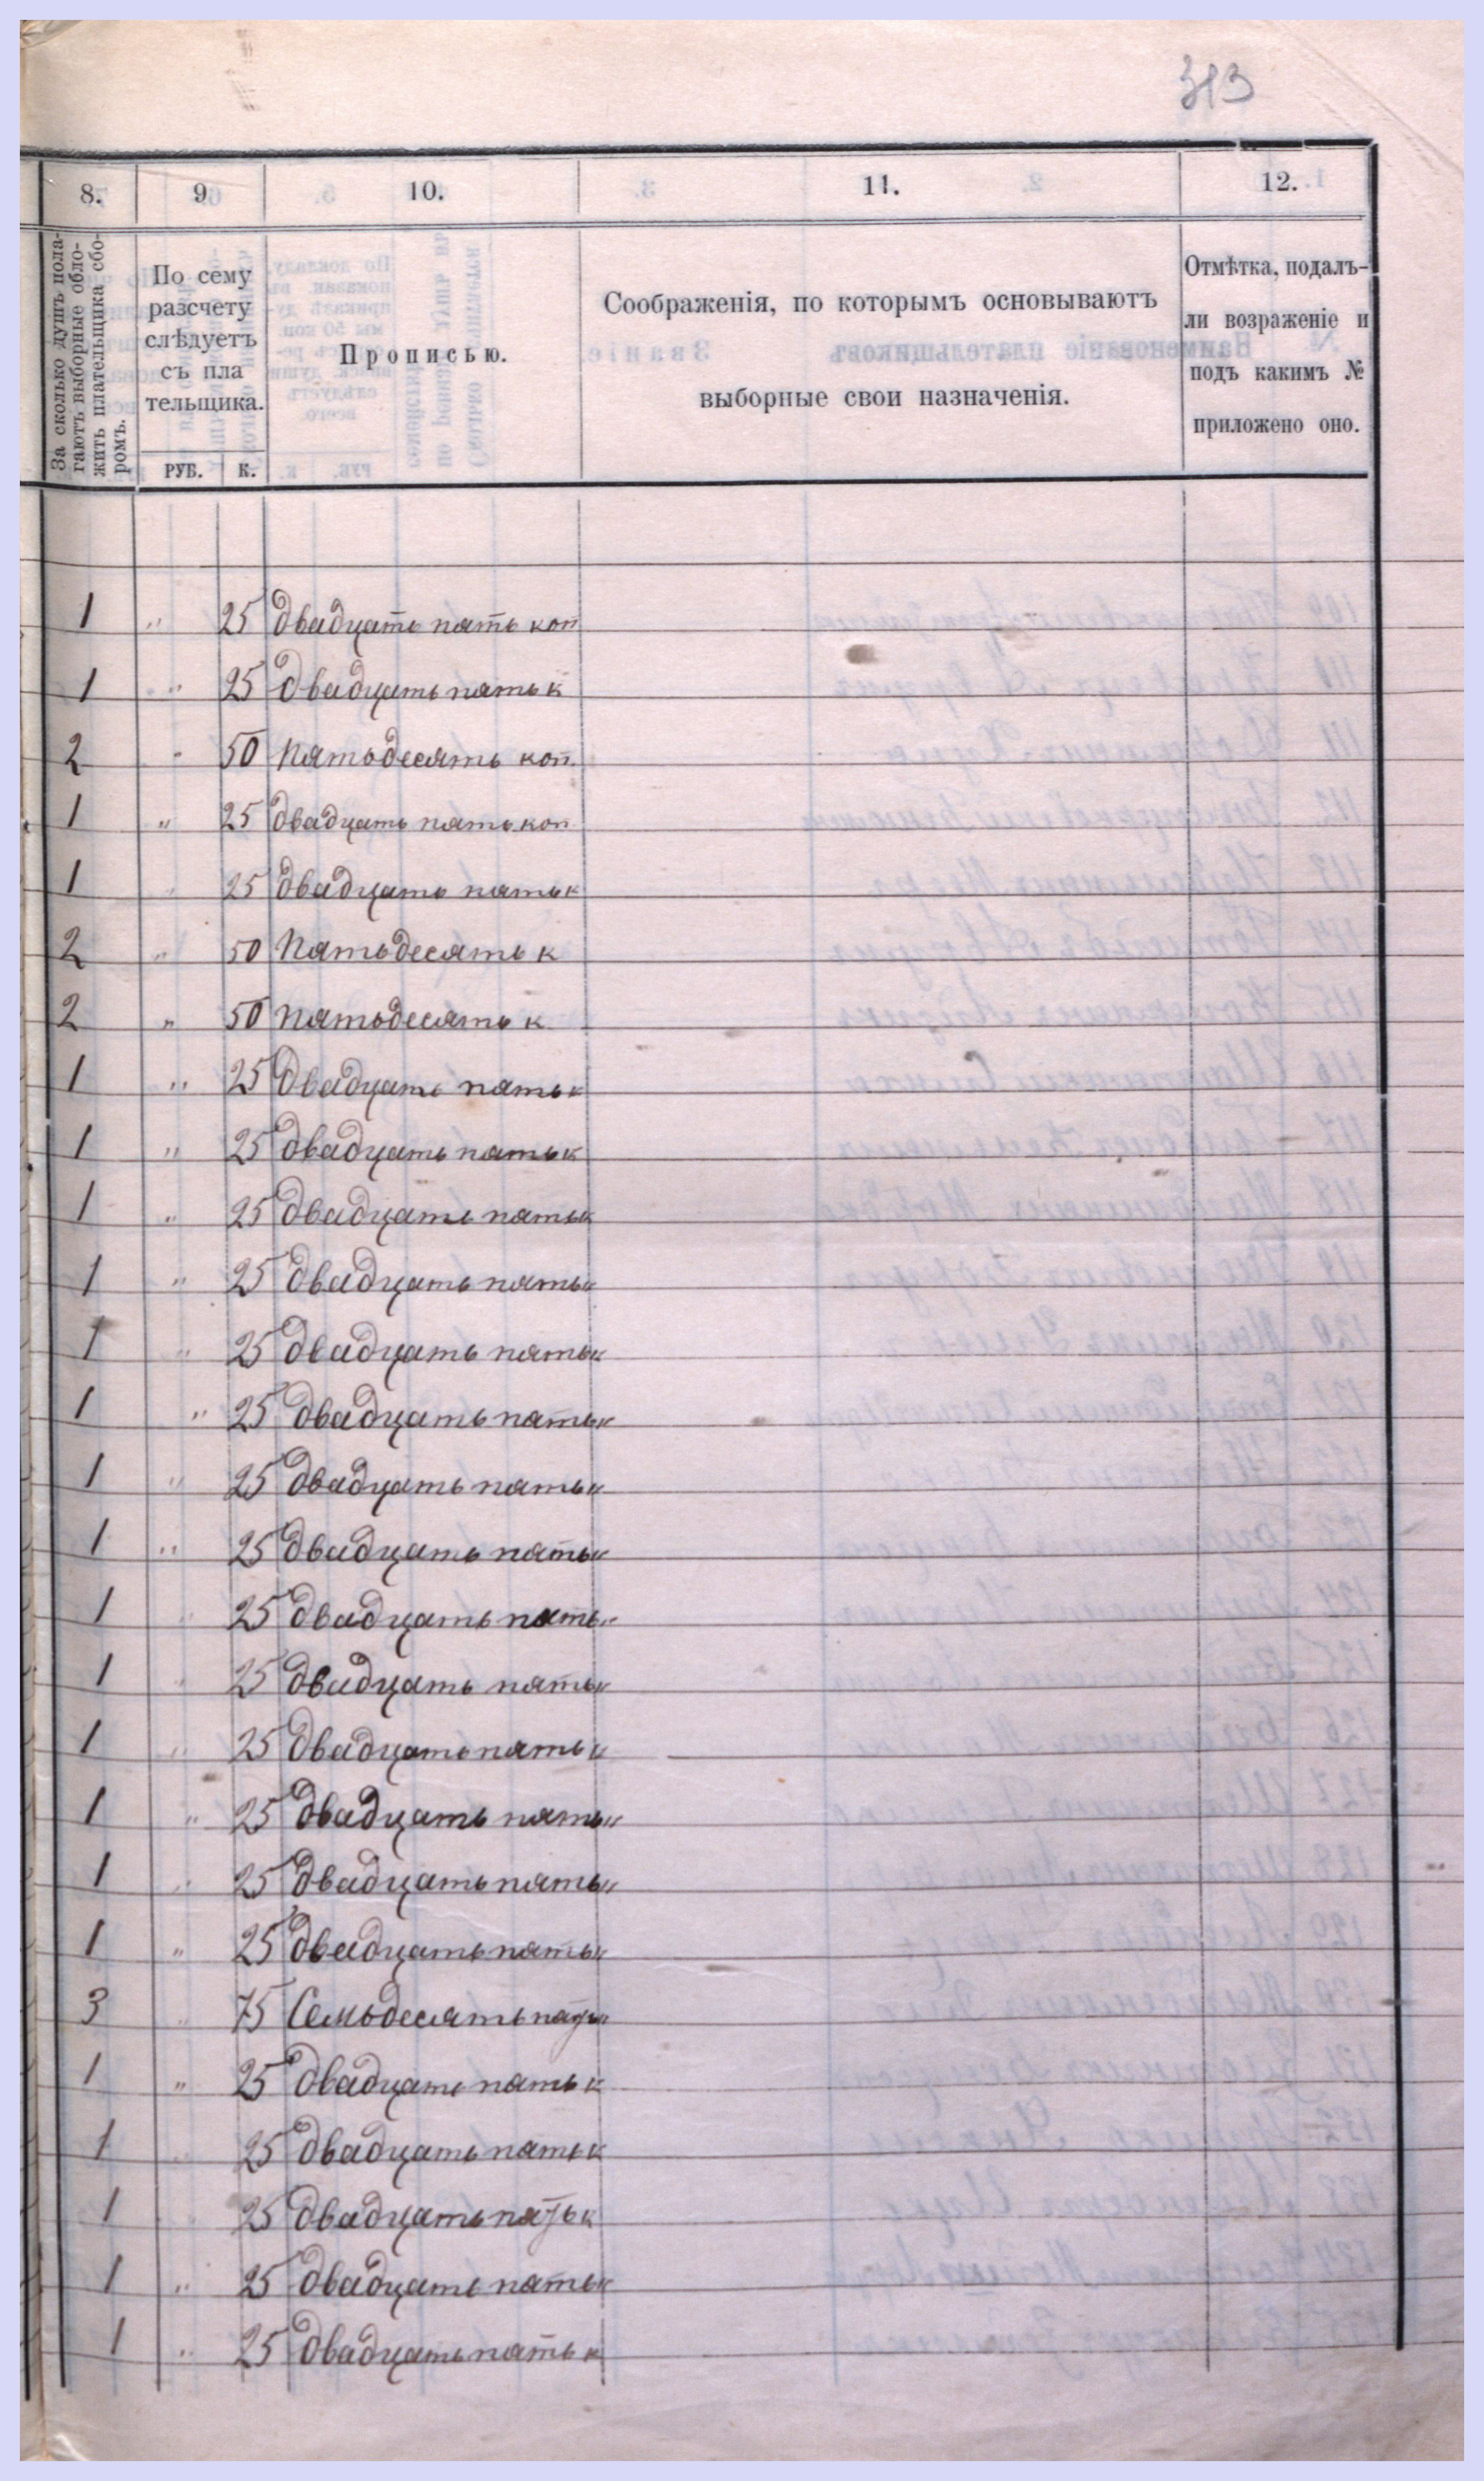 313
8. 9 10. 11. 12.
За сколько душъ пола-
гаютъ выборные обло-
жить плательщика сбо-
ромъ.
По сему
разсчету
слѣдуетъ
съ пла
тельщика.
РУБ. К.
Прописью.
Соображенія, по которымъ основываютъ
выборные свои назначенія.
Отмѣтка, подалъ-
ли возраженіе и
подъ какимъ №
приложено оно.
1 " 25 двадцать пять коп
1 " 25 двадцать пять к
2 " 50 пятьдесять коп.
1 " 25 двадцать пять коп
1 " 25 двадцать пять к
2 " 50 Пятьдесять к
2 " 50 пятьдесять к
1 " 25 двадцать пять к
1 " 25 двадцать пять к
1 " 25 двадцать пять к
1 " 25 двадцать пять к
1 " 25 двадцать пять к
1 " 25 двадцать пять к
1 " 25 двадцать пять к
1 " 25 двадцать пять к
1 " 25 двадцать пять к
1 " 25 двадцать пять к
1 " 25 двадцать пять к
1 " 25 двадцать пять к
1 " 25 двадцать пять к
1 " 25 двадцать пять к
3 " 75 Семьдесять пять к
1 " 25 двадцать пять к
1 " 25 двадцать пять к
1 " 25 двадцать пять к
1 " 25 двадцать пять к
1 " 25 двадцать пять к